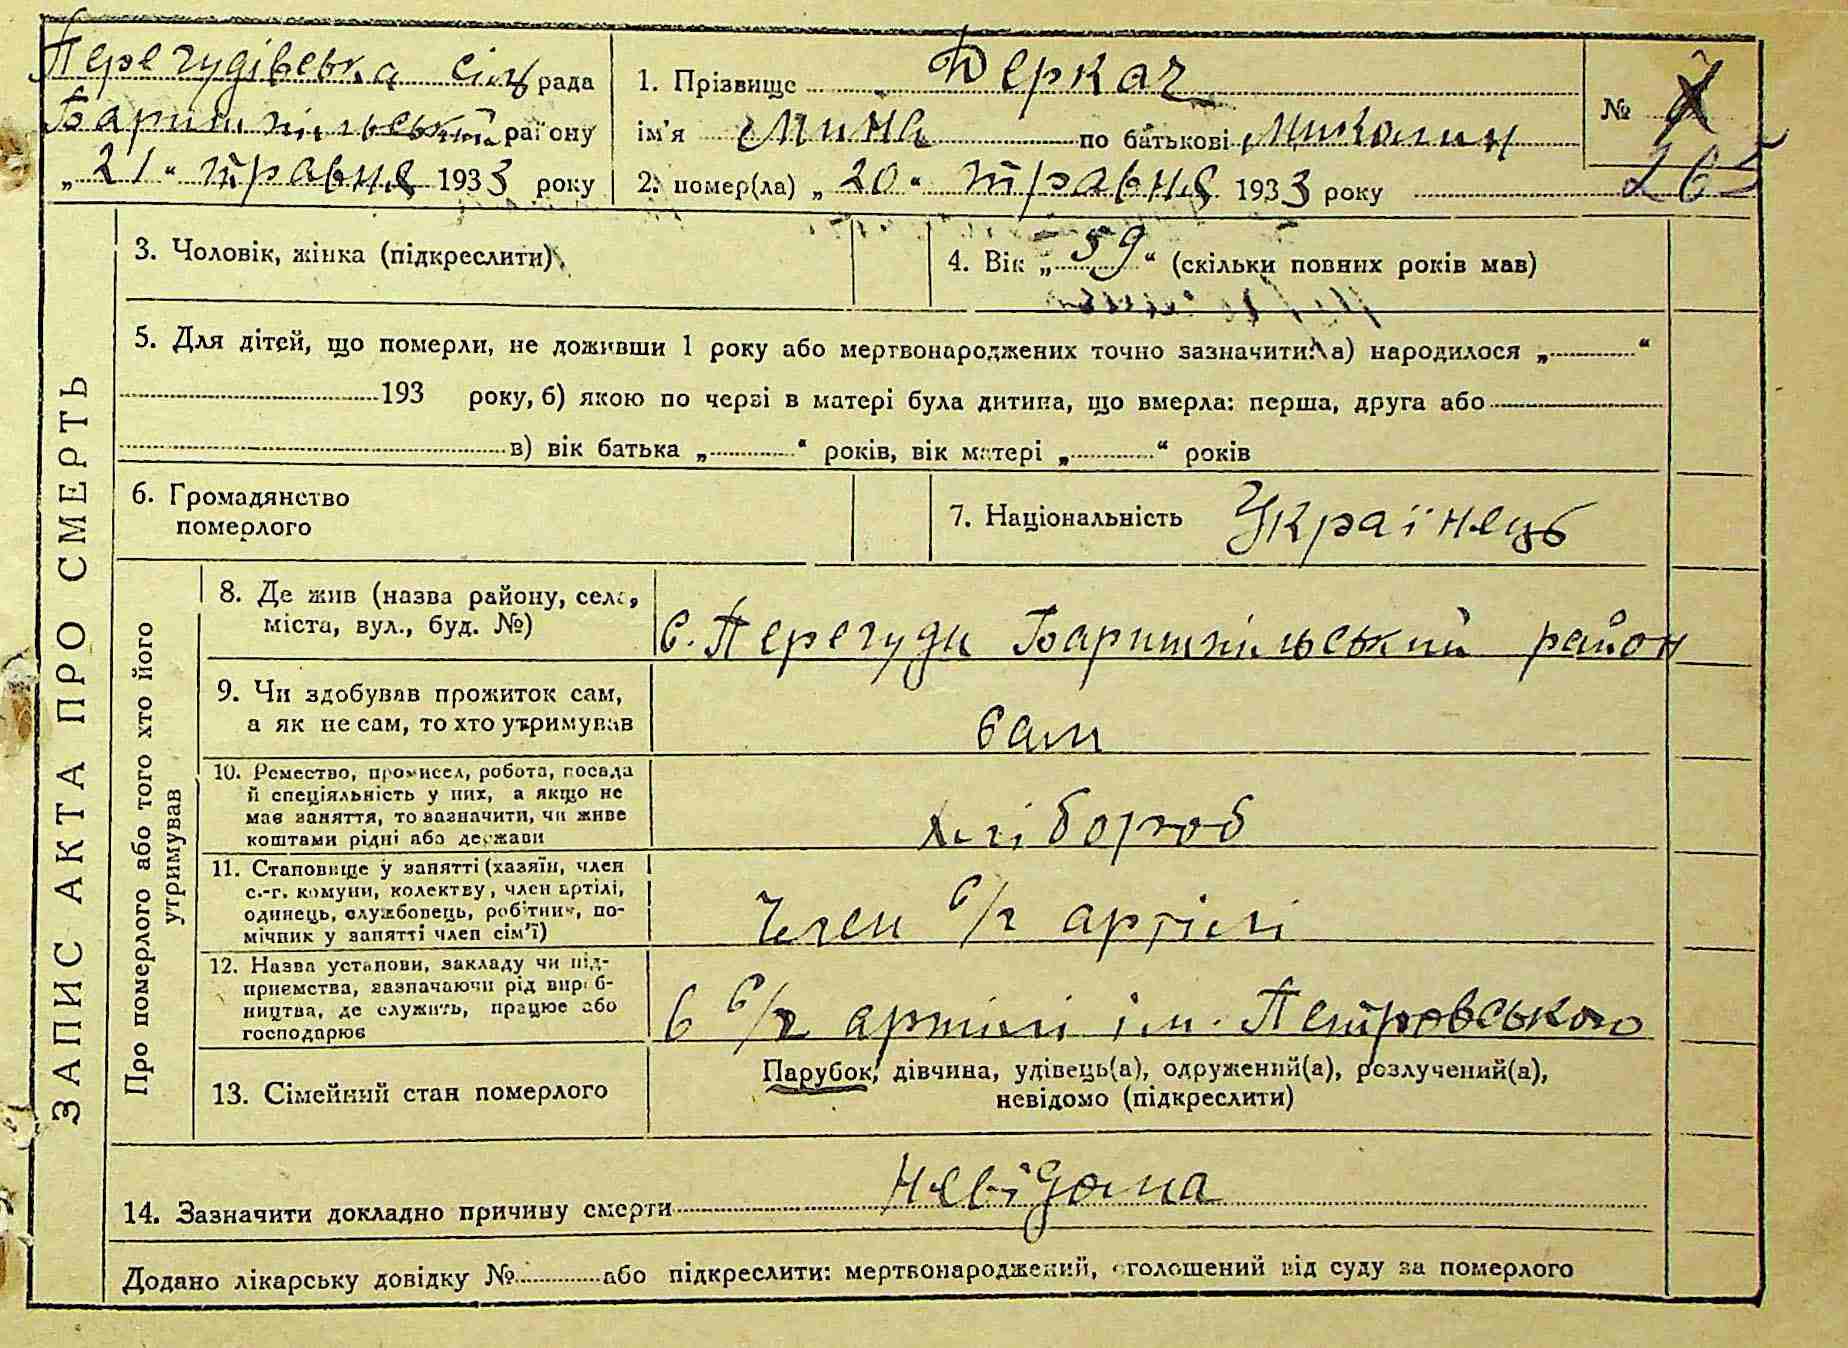 Перегудівська сіл рада
Баришпільський району
„ 21 “ травня 1933 року
1. Прізвище Деркач
ім'я Мина по батькові Миколин
2. помер(ла) „ 20 “ травня 1933 року
№
265
ЗАПИС АКТА ПРО СМЕРТЬ
3. Чоловік, жінка (підкреслити)
4. Вік „ 59 “ (скільки повних років мав)
5. Для дітей, що померли, не доживши 1 року або мертвонароджених точно зазначити: а) народилося „ “
193 року, б) якою по черзі в матері була дитина, що вмерла: перша, друга або
в) вік батька „ “ років, вік матері „ “ років
6. Громадянство
померлого
7. Національність Українець
Про померлого або того хто його
утримував
8. Де жив (назва району, села,
міста, вул., буд. №)
с. Перегуди Баришпільський район
9. Чи здобував прожиток сам,
а як не сам, то хто утримував
сам
10. Ремество, промисел, робота, посада
й спеціяльність у них, а якщо не
має заняття, то зазначити, чи живе
коштами рідні або держави
Хлібороб
11. Становище у занятті (хазяїн, член
с.-г. комуни, колективу, член артілі,
одинець, службовець, робітник, по-
мічник у занятті член сім'ї)
Член с/г артілі
12. Назва установи, закладу чи під-
приємства, зазначаючи рід вироб-
ництва, де служить, працює або
господарює
в с/г артілі ім. Петровського
13. Сімейний стан померлого
Парубок, дівчина, удівець(а), одружений(а), розлучений(а),
невідомо (підкреслити)
14. Зазначити докладно причину смерти Невідома
Додано лікарську довідку № або підкреслити: мертвонароджений, оголошений від суду за померлого